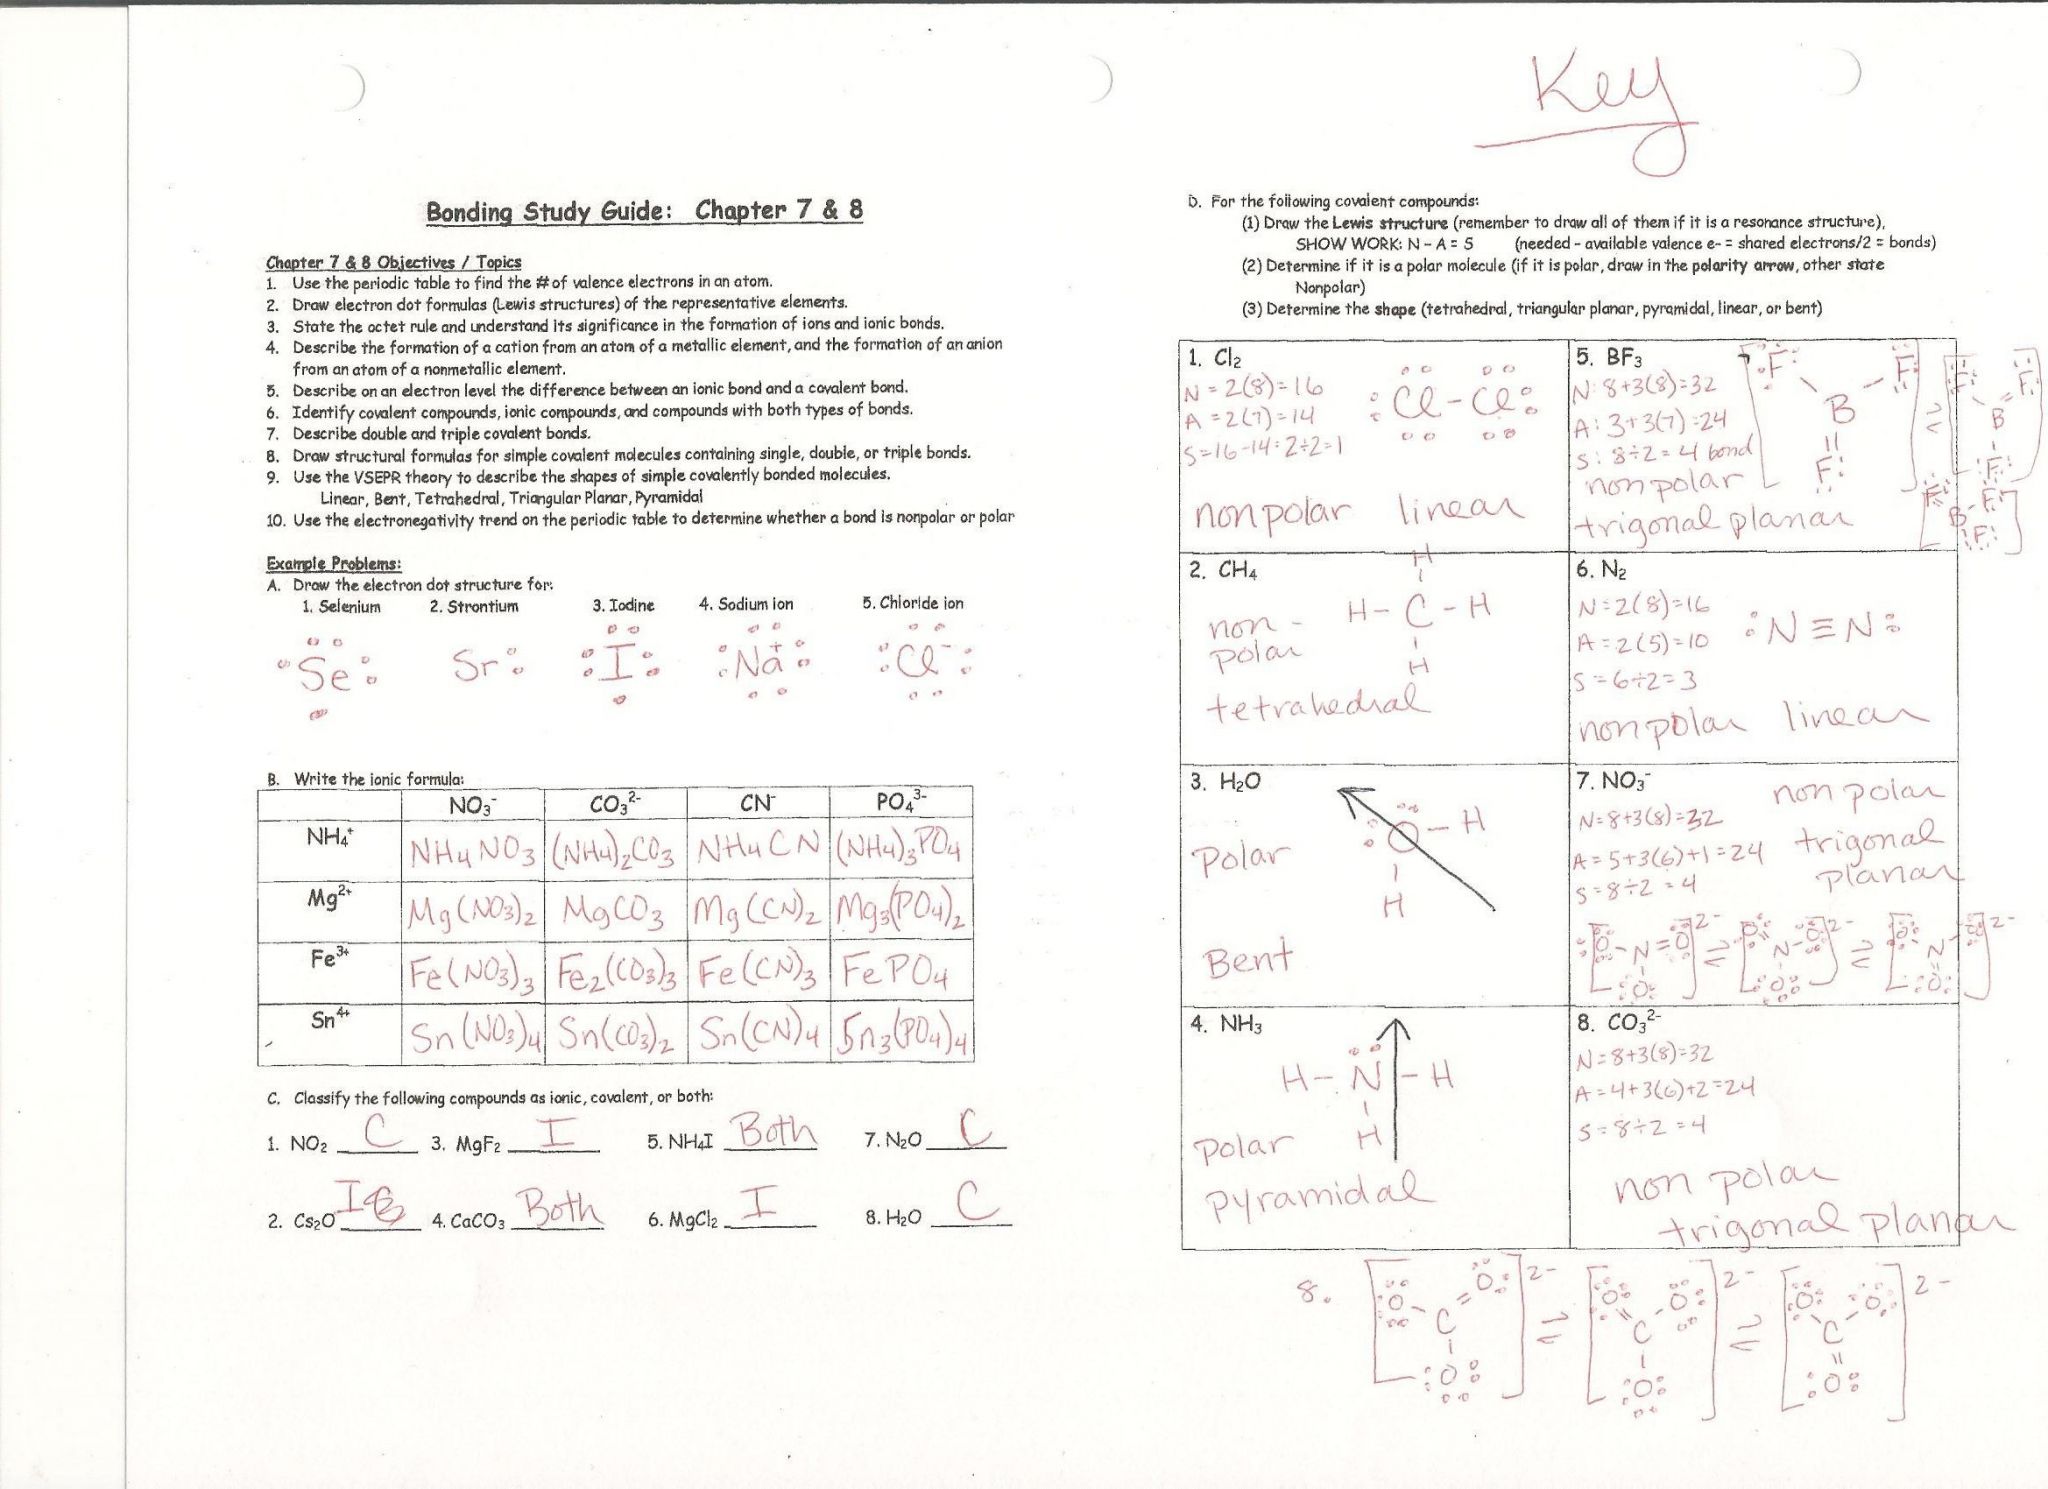 Key
Bonding Study Guide: Chapter 7 & 8
Chapter 7 & 8 Objectives / Topics
1. Use the periodic table to find the # of valence electrons in an atom.
2. Draw electron dot formulas (Lewis structures) of the representative elements.
3. State the octet rule and understand its significance in the formation of ions and ionic bonds.
4. Describe the formation of a cation from an atom of a metallic element, and the formation of an anion
from an atom of a nonmetallic element.
5. Describe on an electron level the difference between an ionic bond and a covalent bond.
6. Identify covalent compounds, ionic compounds, and compounds with both types of bonds.
7. Describe double and triple covalent bonds.
8. Draw structural formulas for simple covalent molecules containing single, double, or triple bonds.
9. Use the VSEPR theory to describe the shapes of simple covalently bonded molecules.
Linear, Bent, Tetrahedral, Triangular Planar, Pyramidal
10. Use the electronegativity trend on the periodic table to determine whether a bond is nonpolar or polar
Example Problems:
A. Draw the electron dot structure for:
1. Selenium 2. Strontium 3. Iodine 4. Sodium ion 5. Chloride ion
Se Sr I Na⁺ Cl⁻
B. Write the ionic formula:
NO₃⁻ CO₃²⁻ CN⁻ PO₄³⁻
NH₄⁺ NH₄NO₃ (NH₄)₂CO₃ NH₄CN (NH₄)₃PO₄
Mg²⁺ Mg(NO₃)₂ MgCO₃ Mg(CN)₂ Mg₃(PO₄)₂
Fe³⁺ Fe(NO₃)₃ Fe₂(CO₃)₃ Fe(CN)₃ FePO₄
Sn⁴⁺ Sn(NO₃)₄ Sn(CO₃)₂ Sn(CN)₄ Sn₃(PO₄)₄
C. Classify the following compounds as ionic, covalent, or both:
1. NO₂ C 3. MgF₂ I 5. NH₄I Both 7. N₂O C
2. Cs₂O I 4. CaCO₃ Both 6. MgCl₂ I 8. H₂O C
D. For the following covalent compounds:
(1) Draw the Lewis structure (remember to draw all of them if it is a resonance structure),
SHOW WORK: N - A = S (needed - available valence e- = shared electrons/2 = bonds)
(2) Determine if it is a polar molecule (if it is polar, draw in the polarity arrow, other state
Nonpolar)
(3) Determine the shape (tetrahedral, triangular planar, pyramidal, linear, or bent)
1. Cl₂
N = 2(8) = 16
A = 2(7) = 14
S = 16 - 14 = 2 ÷ 2 = 1
Cl - Cl
nonpolar linear
2. CH₄
H
H - C - H
H
non-
polar
tetrahedral
3. H₂O
O - H
H
Polar
Bent
4. NH₃
H - N - H
H
polar
pyramidal
5. BF₃
N: 8+3(8)=32
A: 3+3(7)=24
S: 8÷2=4 bond
nonpolar
trigonal planar
F F
B
F
F F
B
F
F F
B
F
6. N₂
N = 2(8)=16
A = 2(5)=10
S = 6÷2=3
N≡N
nonpolar linear
7. NO₃⁻
N=8+3(8)=32
A=5+3(6)+1=24
S=8÷2=4
non polar
trigonal
planar
[O - N = O]2- ⇌ [O = N - O]2- ⇌ [O - N - O]2-
O O O
8. CO₃²⁻
N=8+3(8)=32
A=4+3(6)+2=24
S=8÷2=4
non polar
trigonal planar
8. [O - C = O]2- ⇌ [O = C - O]2- ⇌ [O - C - O]2-
O O O